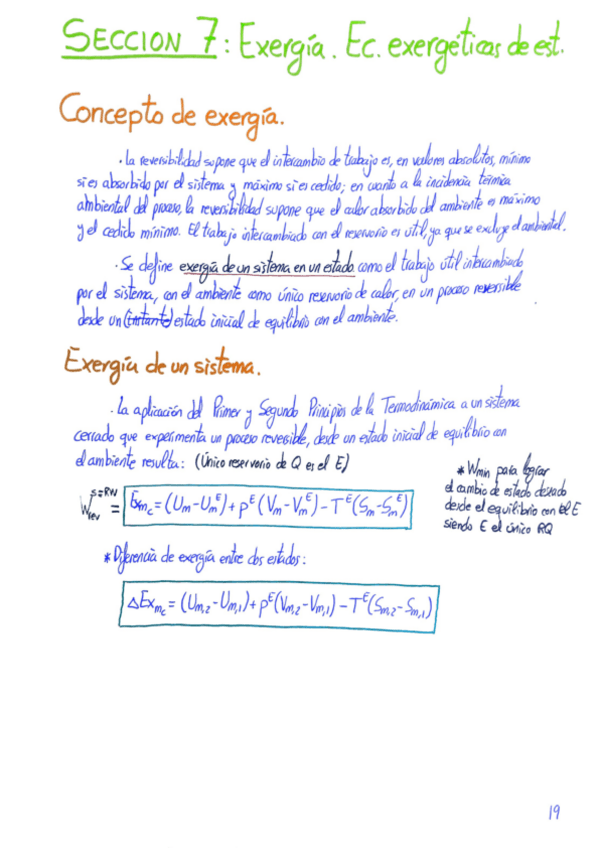 SECCION 7: Exergía. Ec. exergéticas de est.
Concepto de exergía.
· La reversibilidad supone que el intercambio de trabajo es, en valores absolutos, mínimo
si es absorbido por el sistema y máximo si es cedido; en cuanto a la incidencia térmica
ambiental del proceso, la reversibilidad supone que el calor absorbido del ambiente es máximo
y el cedido mínimo. El trabajo intercambiado con el reservorio es útil, ya que se excluye el ambiental.
· Se define exergía de un sistema en un estado como el trabajo útil intercambiado
por el sistema, con el ambiente como único reservorio de calor, en un proceso reversible
desde un (instante) estado inicial de equilibrio con el ambiente.
Exergía de un sistema.
· La aplicación del Primer y Segundo Principios de la Termodinámica a un sistema
cerrado que experimenta un proceso reversible, desde un estado inicial de equilibrio con
el ambiente resulta: (Único reservorio de Q es el E)
W_rev^{S≡RW} = Ex_{mc} = (U_m - U_m^E) + p^E (V_m - V_m^E) - T^E (S_m - S_m^E)
* Wmin para lograr
el cambio de estado deseado
desde el equilibrio con el E
siendo E el único RQ
* Diferencia de exergía entre dos estados:
ΔEx_{mc} = (U_{m,2} - U_{m,1}) + p^E (V_{m,2} - V_{m,1}) - T^E (S_{m,2} - S_{m,1})
19